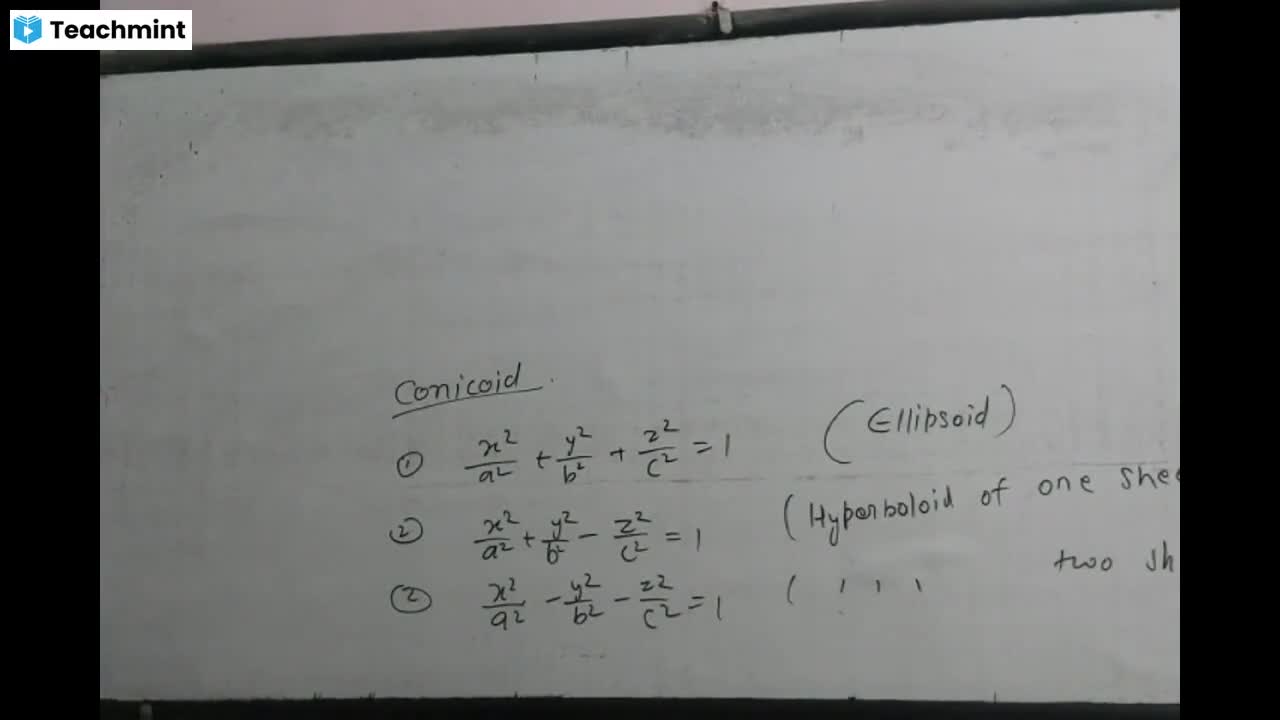 Teachmint
Conicoid.
① x²/a² + y²/b² + z²/c² = 1 (Ellipsoid)
② x²/a² + y²/b² − z²/c² = 1 (Hyperboloid of one shee
② x²/a² − y²/b² − z²/c² = 1 ( ' ' ' two sh